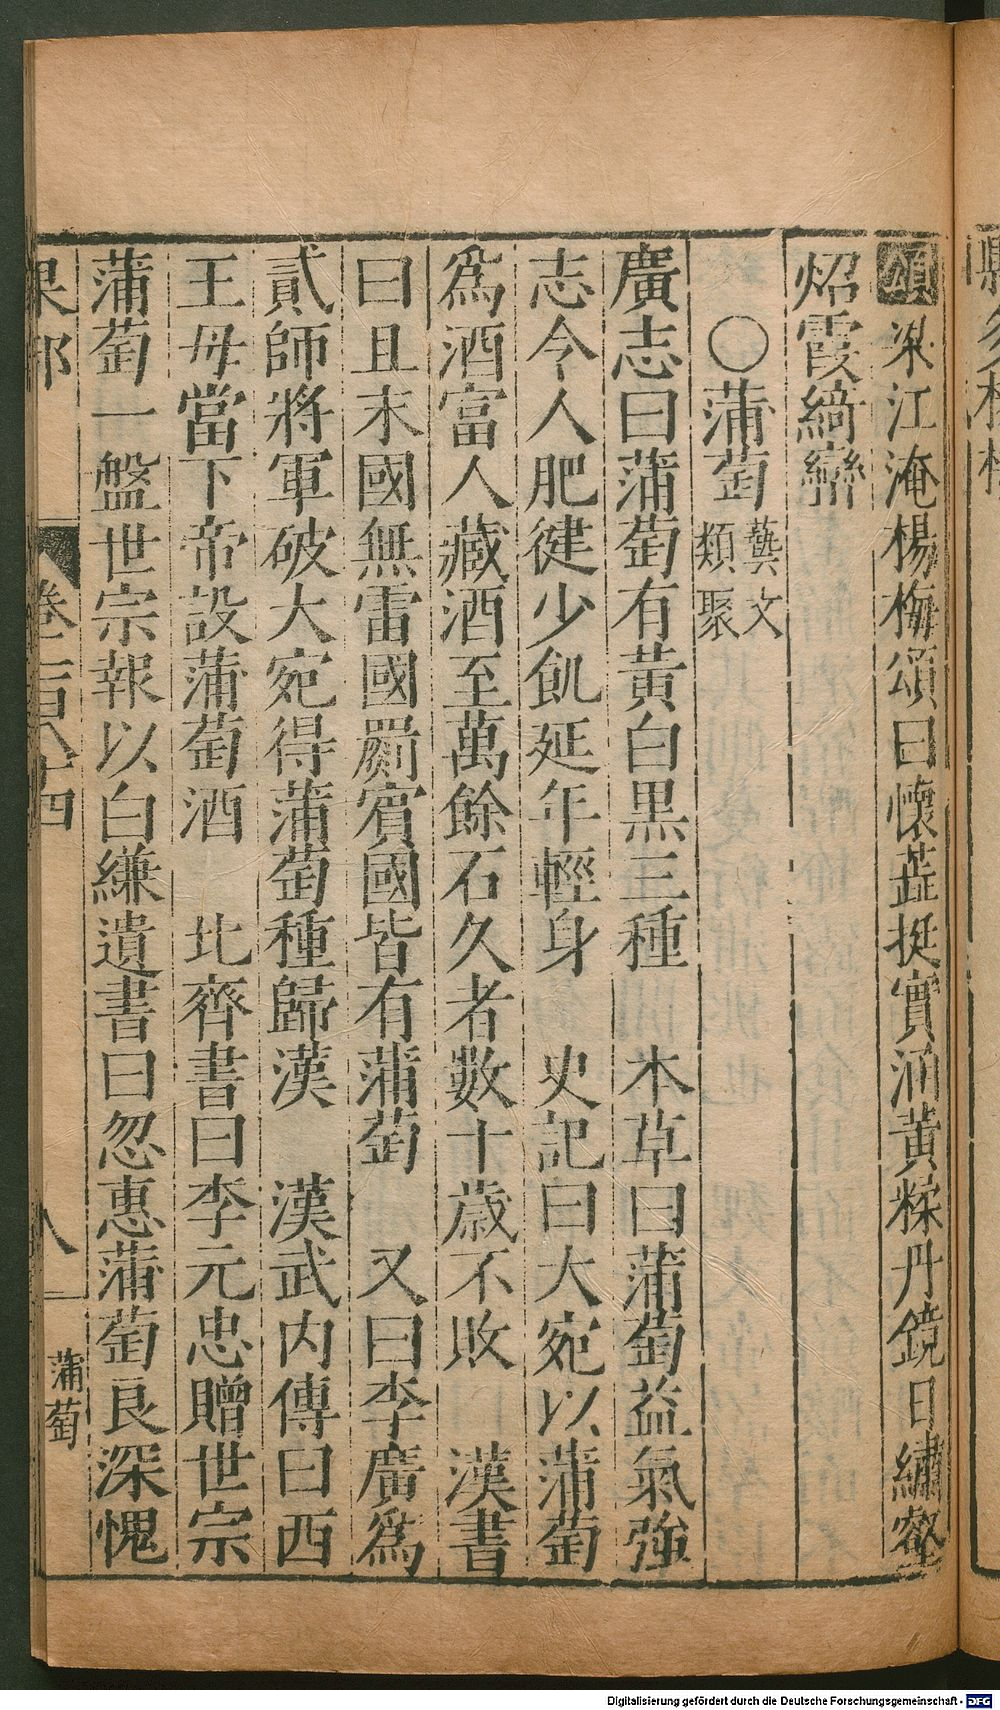 頌梁江淹楊梅頌曰懷蘂挺實涵黃糅丹鏡日繡壑
炤霞綺巒
○蒲萄藝文類聚
廣志曰蒲萄有黃白黒三種　本草曰蒲萄益氣強
志令人肥健少飢延年輕身　史記曰大宛以蒲萄
為酒富人藏酒至萬餘石久者數十歲不敗　漢書
曰且末國無雷國罽賓國皆有蒲萄　又曰李廣為
貳師將軍破大宛得蒲萄種歸漢　漢武内傳曰西
王母當下帝設蒲萄酒　北齊書曰李元忠贈世宗
蒲萄一盤世宗報以白縑遺書曰忽惠蒲萄良深愧
果部　卷一百八十四　八　蒲萄
Digitalisierung gefördert durch die Deutsche Forschungsgemeinschaft - DFG